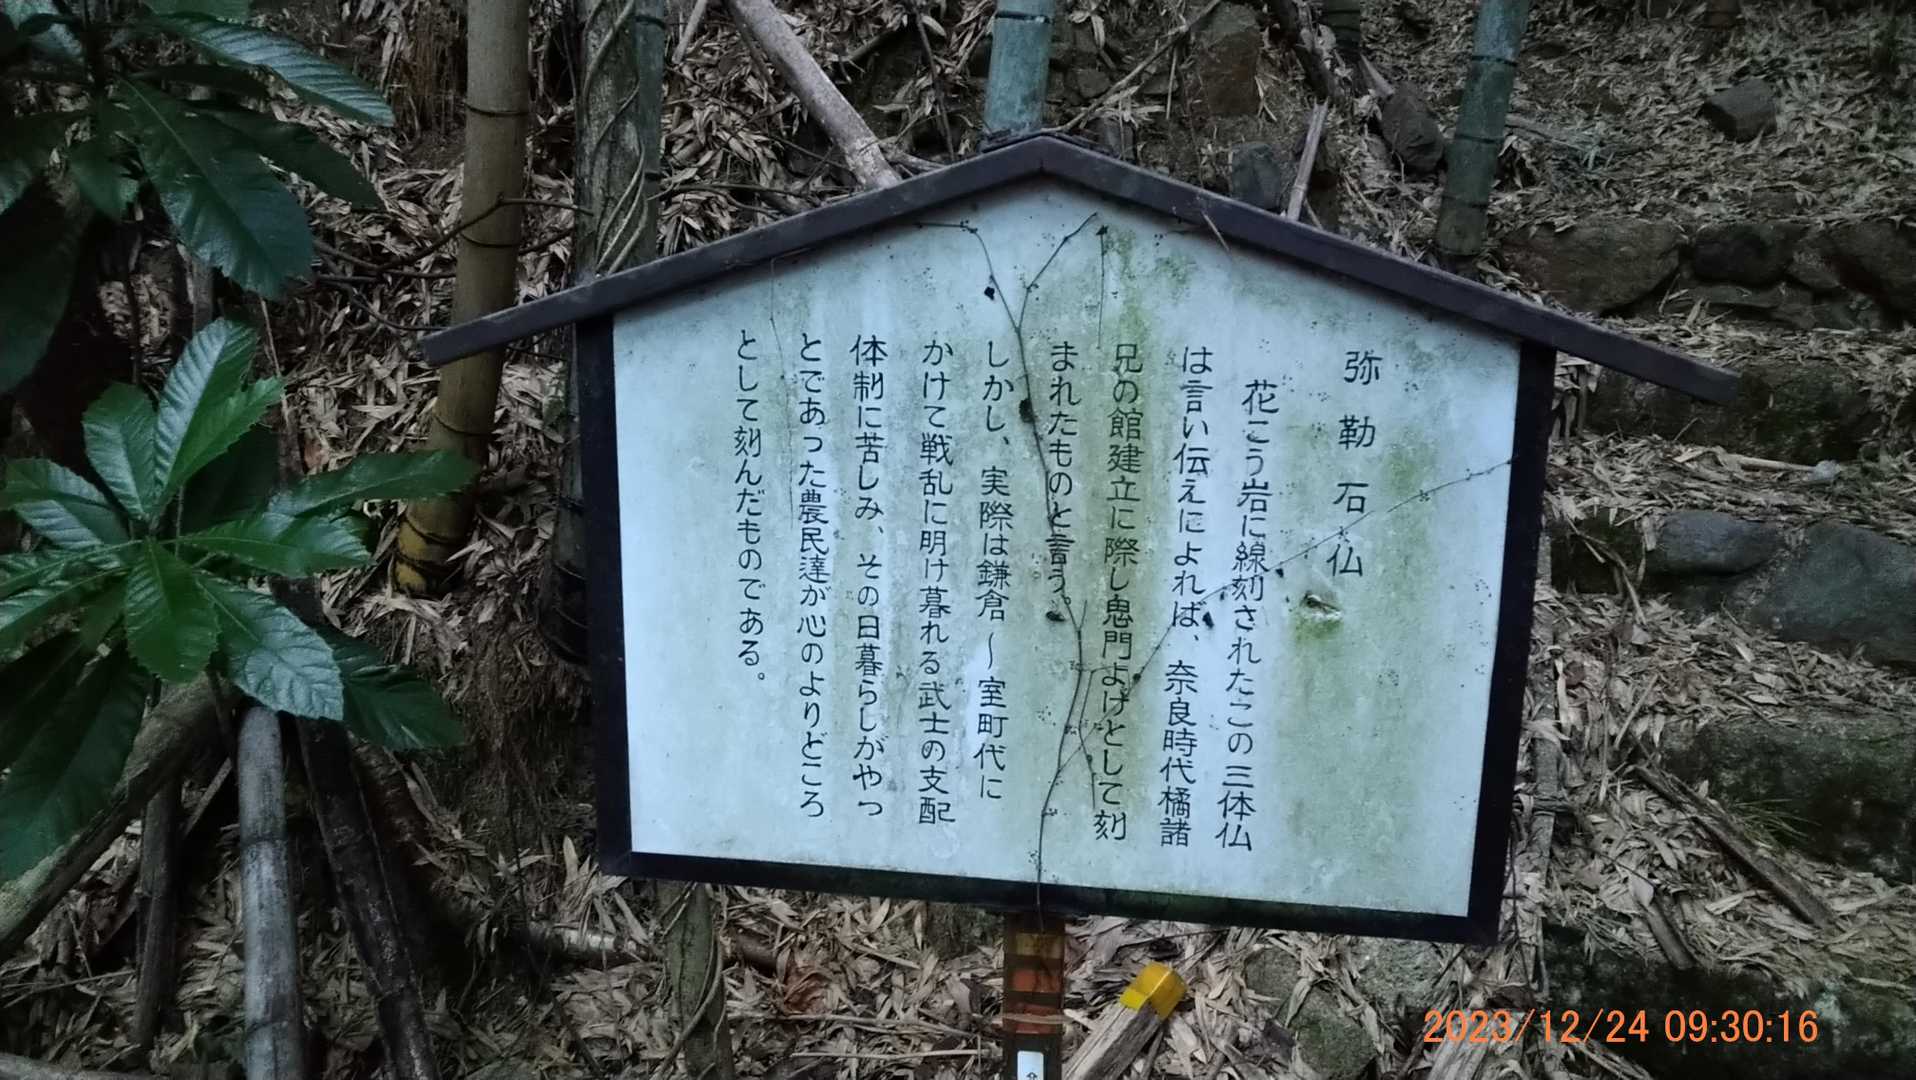 弥勒石仏
花こう岩に線刻されたこの三体仏
は言い伝えによれば、奈良時代橘諸
兄の館建立に際し鬼門よけとして刻
まれたものと言う。
しかし、実際は鎌倉～室町代に
かけて戦乱に明け暮れる武士の支配
体制に苦しみ、その日暮らしがやっ
とであった農民達が心のよりどころ
として刻んだものである。
2023/12/24 09:30:16